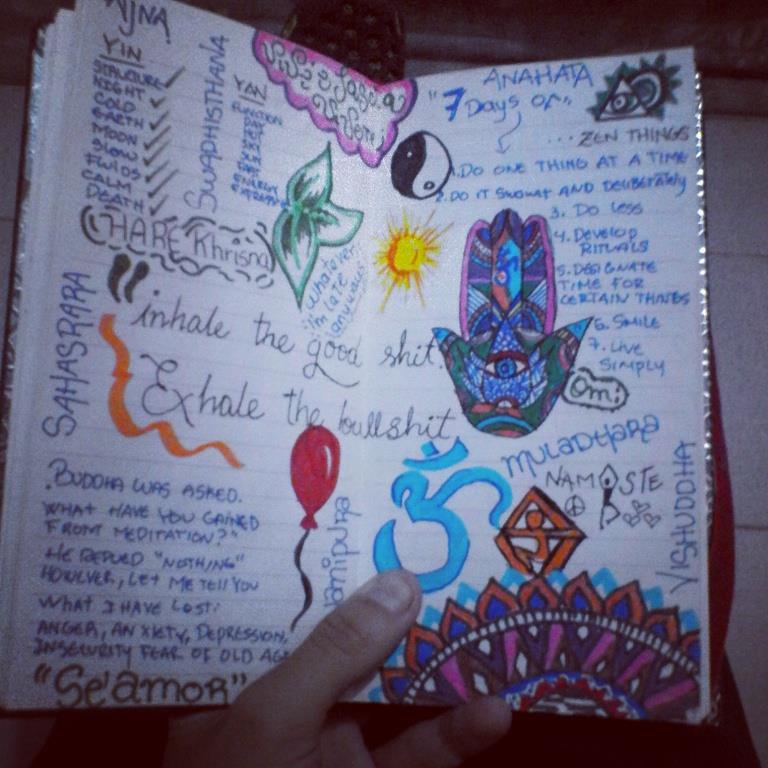 AJNA
YIN
STRUCTURE
NIGHT
COLD
EARTH
MOON
SLOW
FLUIDS
CALM
DEATH
SWADHISTHANA
YAN
FUNCTION
SKY
SUN
ENERGY
HARE Khrisna
whatever,
i'm late
anyways
SAHASRARA
"inhale the good shit.
Exhale the bullshit
BUDDHA WAS ASKED.
WHAT HAVE YOU GAINED
FROM MEDITATION?"
HE REPLIED "NOTHING"
HOWEVER, LET ME TELL YOU
WHAT I HAVE LOST:
ANGER, ANXIETY, DEPRESSION,
INSECURITY FEAR OF OLD AGE
"Se amor"
manipura
ANAHATA
"7 Days OF"
...ZEN THINGS
1.DO ONE THING AT A TIME
2.DO IT SLOWLY AND DELIBERATELY
3. DO less
4. Develop
RITUALS
5.DESIGNATE
TIME FOR
CERTAIN THINGS
6. SMILE
7. LIVE
SIMPLY
Om;
MULADHARA
NAMASTE
VISHUDDHA